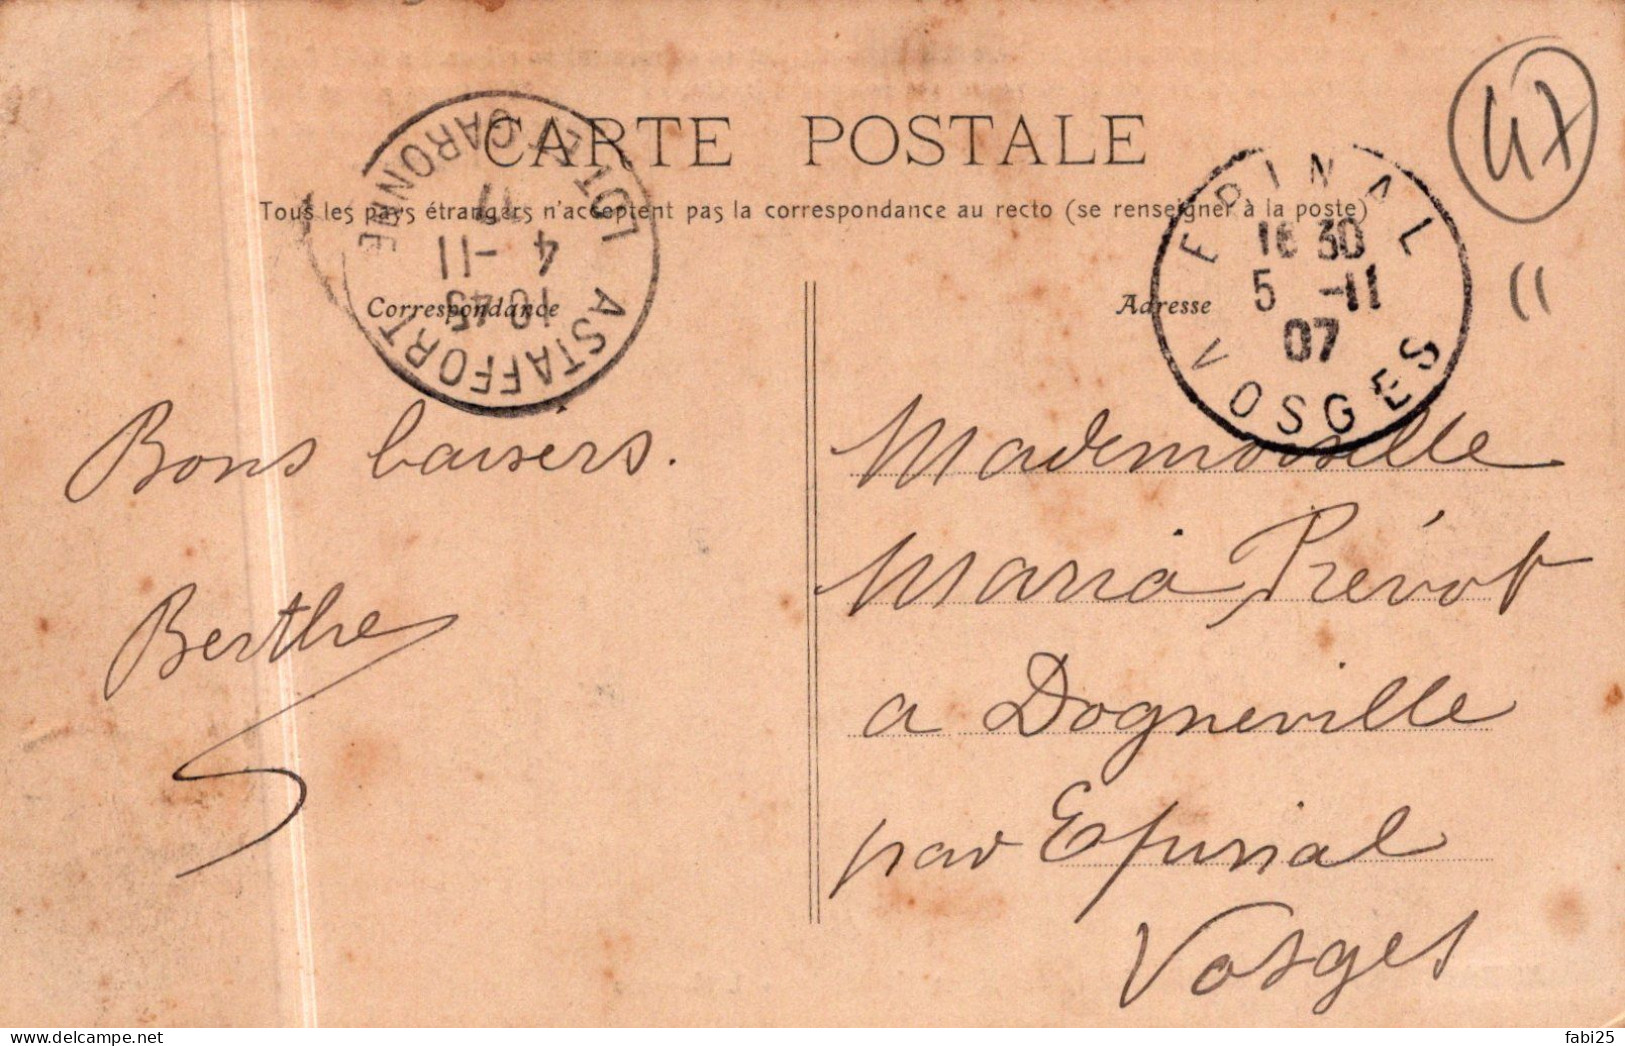 CARTE POSTALE
Tous les pays étrangers n'acceptent pas la correspondance au recto (se renseigner à la poste)
Correspondance
Adresse
ASTAFFORT
LOT ET GARONNE
10 45
4 -11
EPINAL
16 30
5 -11
07
VOSGES
47
Bons baisers.
Berthe
Mademoiselle
Maria Prévot
a Dogneville
par Epinal
Vosges
fabi25